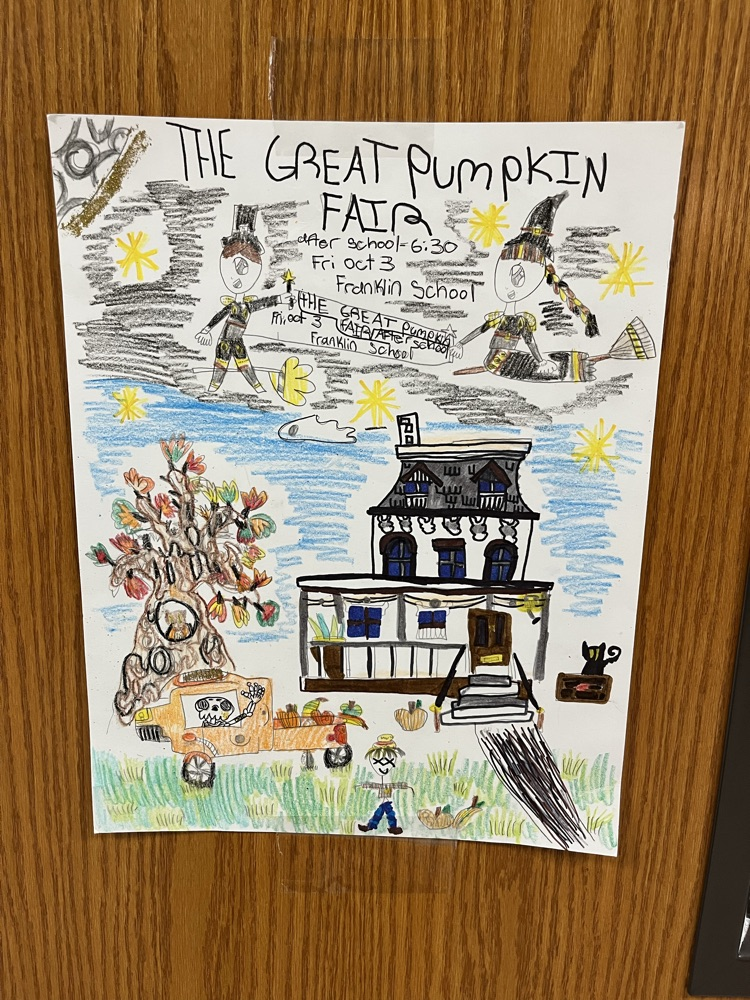 THE GREAT PUMPKIN
FAIR
after school-6:30
Fri oct 3
Franklin School
THE GREAT PUMPKIN
Fri, oct 3 FAIR/After school
Franklin School